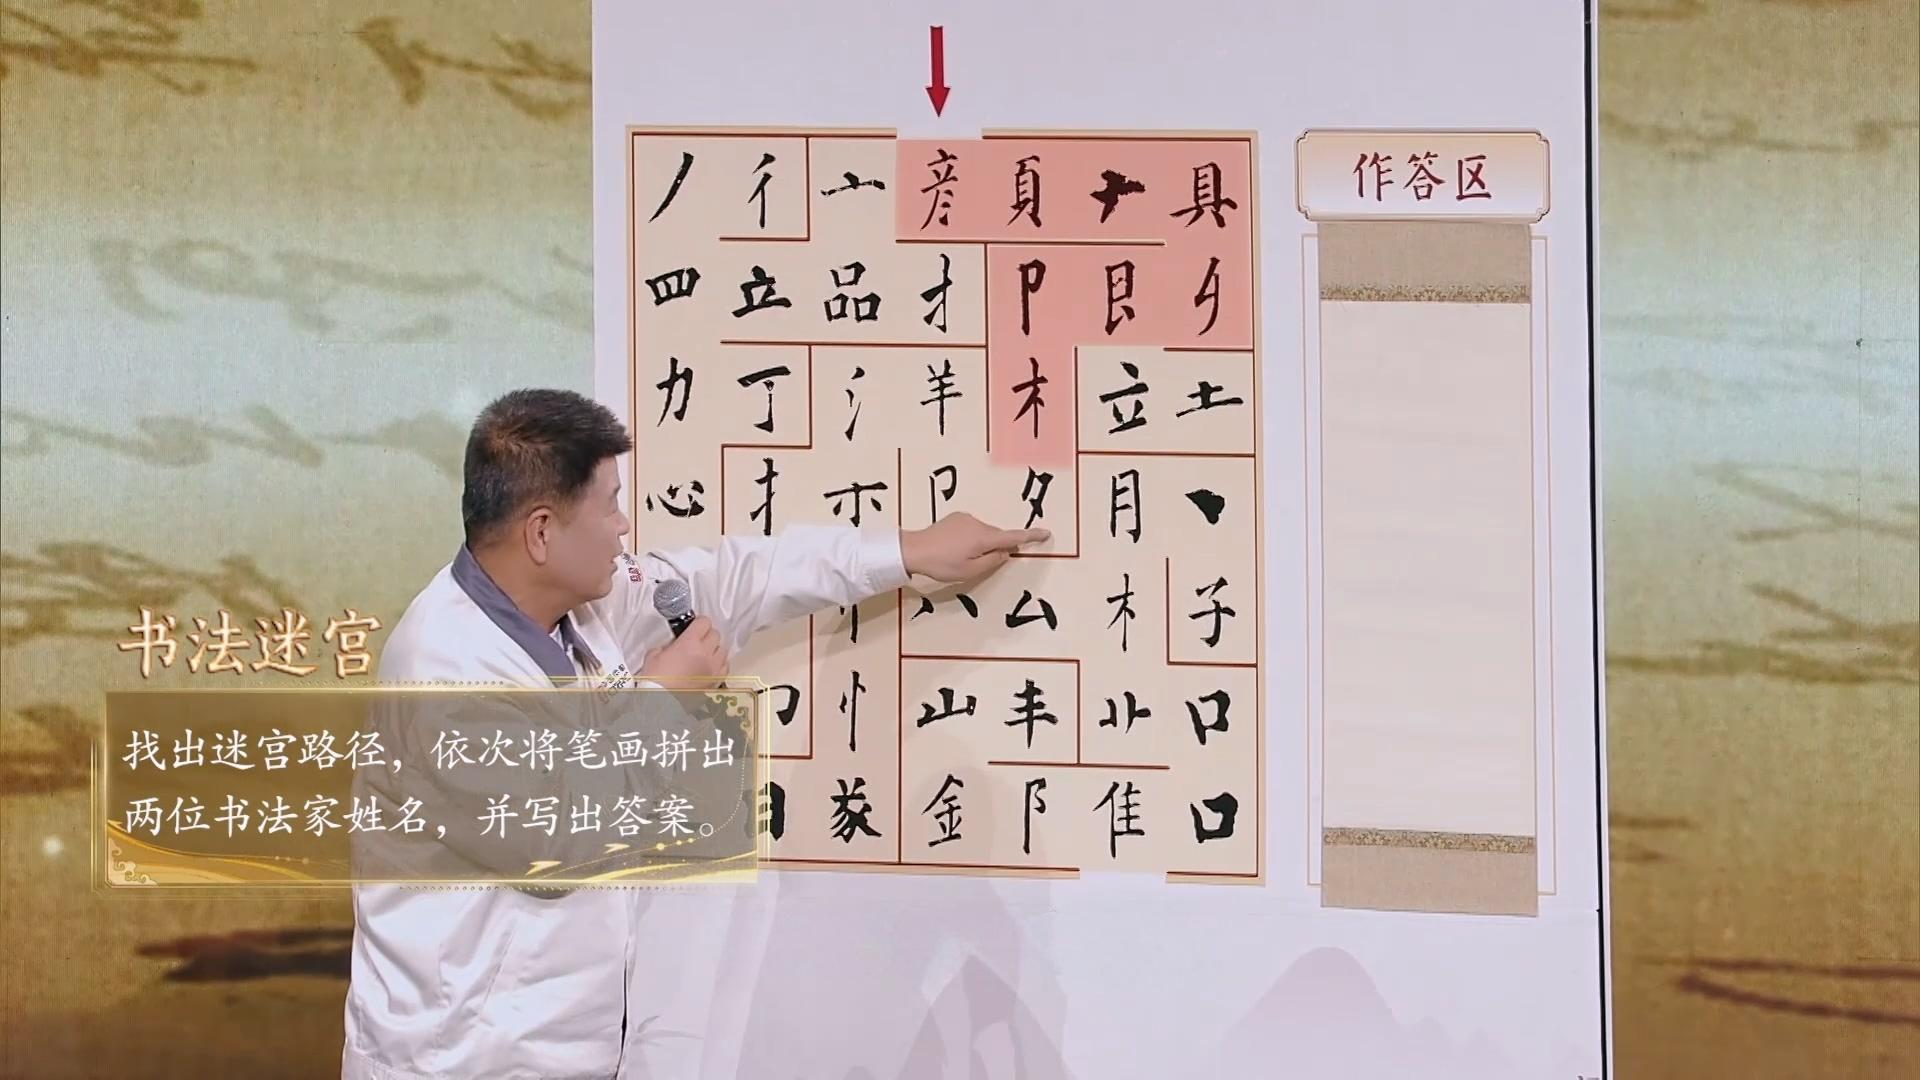 作答区
丿 彳 亠 彦 頁 十 具
四 立 品 才 卩 艮 乡
力 丁 氵 羊 木 立 土
心 扌 木 卩 夕 月 丶
八 厶 木 子
忄 山 丰 北 口
金 阝 隹 口
书法迷宫
找出迷宫路径，依次将笔画拼出
两位书法家姓名，并写出答案。